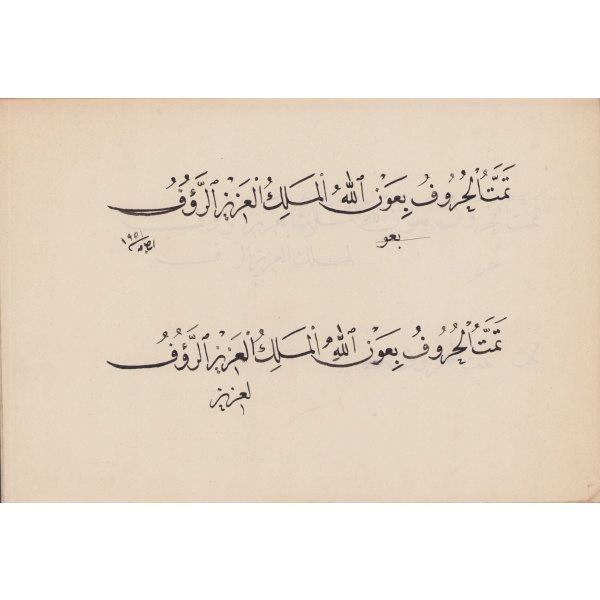 تَمَّتُ الْحُرُوفُ بِعَوْنِ اللهُ الْمَلِكُ الْعَزِيزِ الرَّؤُوفُ
بعو
١٩٥١
تَمَّتُ الْحُرُوفُ بِعَوْنِ اللهُ الْمَلِكُ الْعَزِيزِ الرَّؤُوفُ
لعزيز